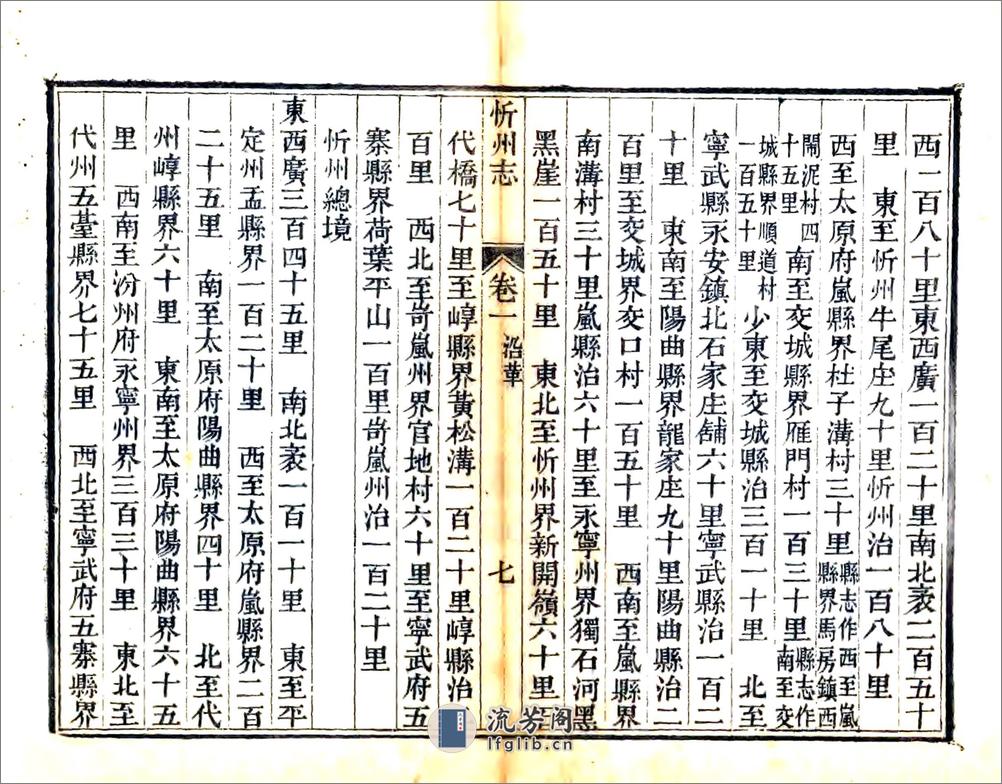 西一百八十里東西廣一百二十里南北袤二百五十
里　東至忻州牛尾庄九十里忻州治一百八十里
西至太原府嵐縣界杜子溝村三十里縣志作西至嵐縣界馬房鎮西
鬧泥村四十五里　南至交城縣界雁門村一百三十里縣志作南至交
城縣界順道村一百五十里　少東至交城縣治三百一十里　北至
寧武縣永安鎮北石家庄舖六十里寧武縣治一百二
十里　東南至陽曲縣界龍家庄九十里陽曲縣治二
百里至交城界交口村一百五十里　西南至嵐縣界
南溝村三十里嵐縣治六十里至永寧州界獨石河黑
黑崖一百五十里　東北至忻州界新開嶺六十里至
忻州志　卷一　沿革　七
代橋七十里至崞縣界黃松溝一百二十里崞縣治
百里　西北至岢嵐州界官地村六十里至寧武府五
寨縣界荷葉平山一百里岢嵐州治一百二十里
忻州總境
東西廣三百四十五里　南北袤一百一十里　東至平
定州孟縣界一百二十里　西至太原府嵐縣界二百
二十五里　南至太原府陽曲縣界四十里　北至代
州崞縣界六十里　東南至太原府陽曲縣界六十五
里　西南至汾州府永寧州界三百三十里　東北至
代州五臺縣界七十五里　西北至寧武府五寨縣界
流芳阁
lfglib.cn